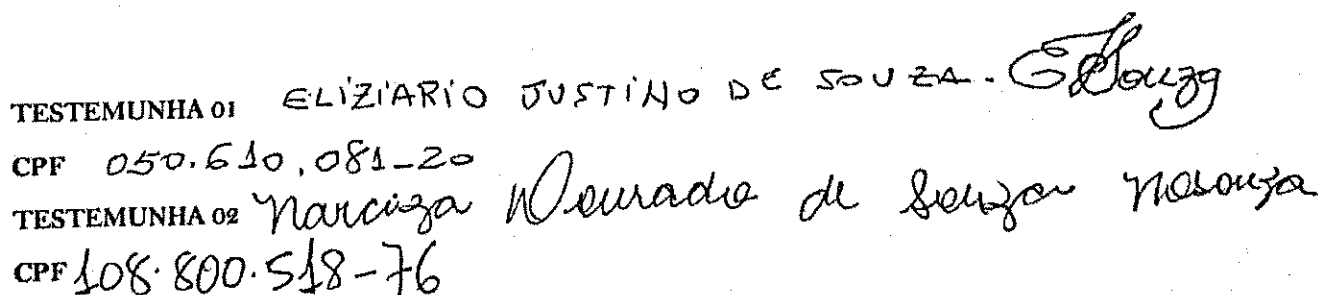 TESTEMUNHA 01 ELIZIARIO JUSTINO DE SOUZA. EJSouza
CPF 050.610.081-20
TESTEMUNHA 02 Narciza Dourado de Souza NDSouza
CPF 108.800.518-76